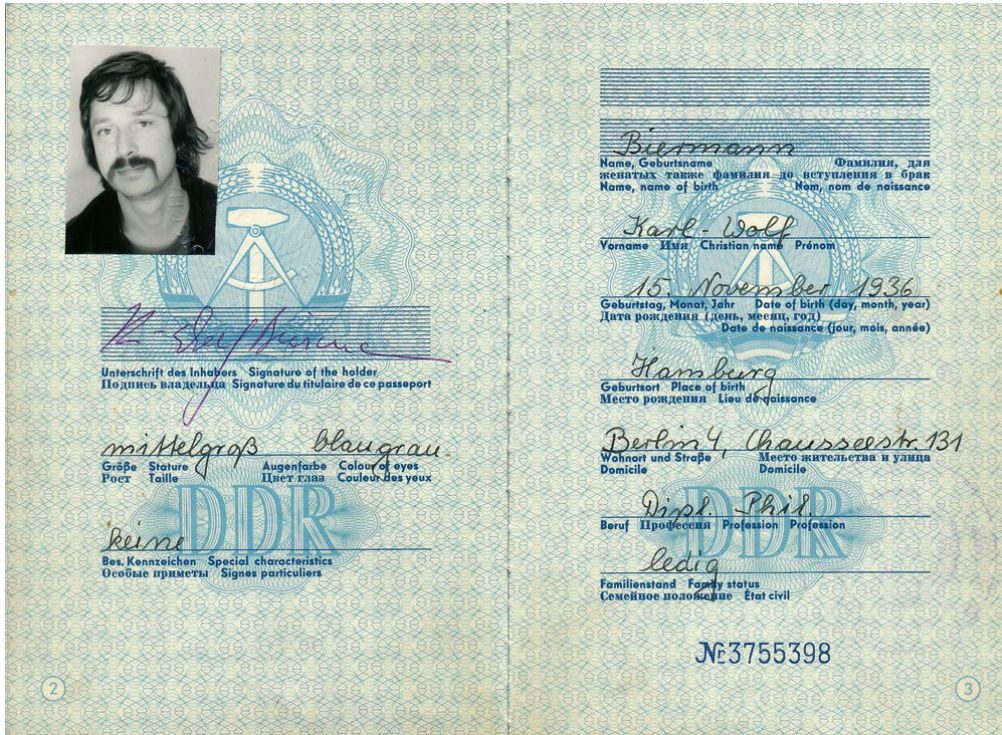 K-Wolf Biermann
Unterschrift des Inhabers Signature of the holder
Подпись владельца Signature du titulaire de ce passeport
mittelgroß blaugrau.
Größe Stature Augenfarbe Colour of eyes
Рост Taille Цвет глаз Couleur des yeux
DDR
keine
Bes. Kennzeichen Special characteristics
Особые приметы Signes particuliers
2
Biermann
Name, Geburtsname Фамилия, для
женатых также фамилия до вступления в брак
Name, name of birth Nom, nom de naissance
Karl-Wolf
Vorname Имя Christian name Prénom
15. November 1936
Geburtstag, Monat, Jahr Date of birth (day, month, year)
Дата рождения (день, месяц, год)
Date de naissance (jour, mois, année)
Hamburg
Geburtsort Place of birth
Место рождения Lieu de naissance
Berlin 4, Chausseestr. 131
Wohnort und Straße Место жительства и улица
Domicile Domicile
Dipl. Phil.
Beruf Профессия Profession Profession
DDR
ledig
Familienstand Family status
Семейное положение État civil
№3755398
3